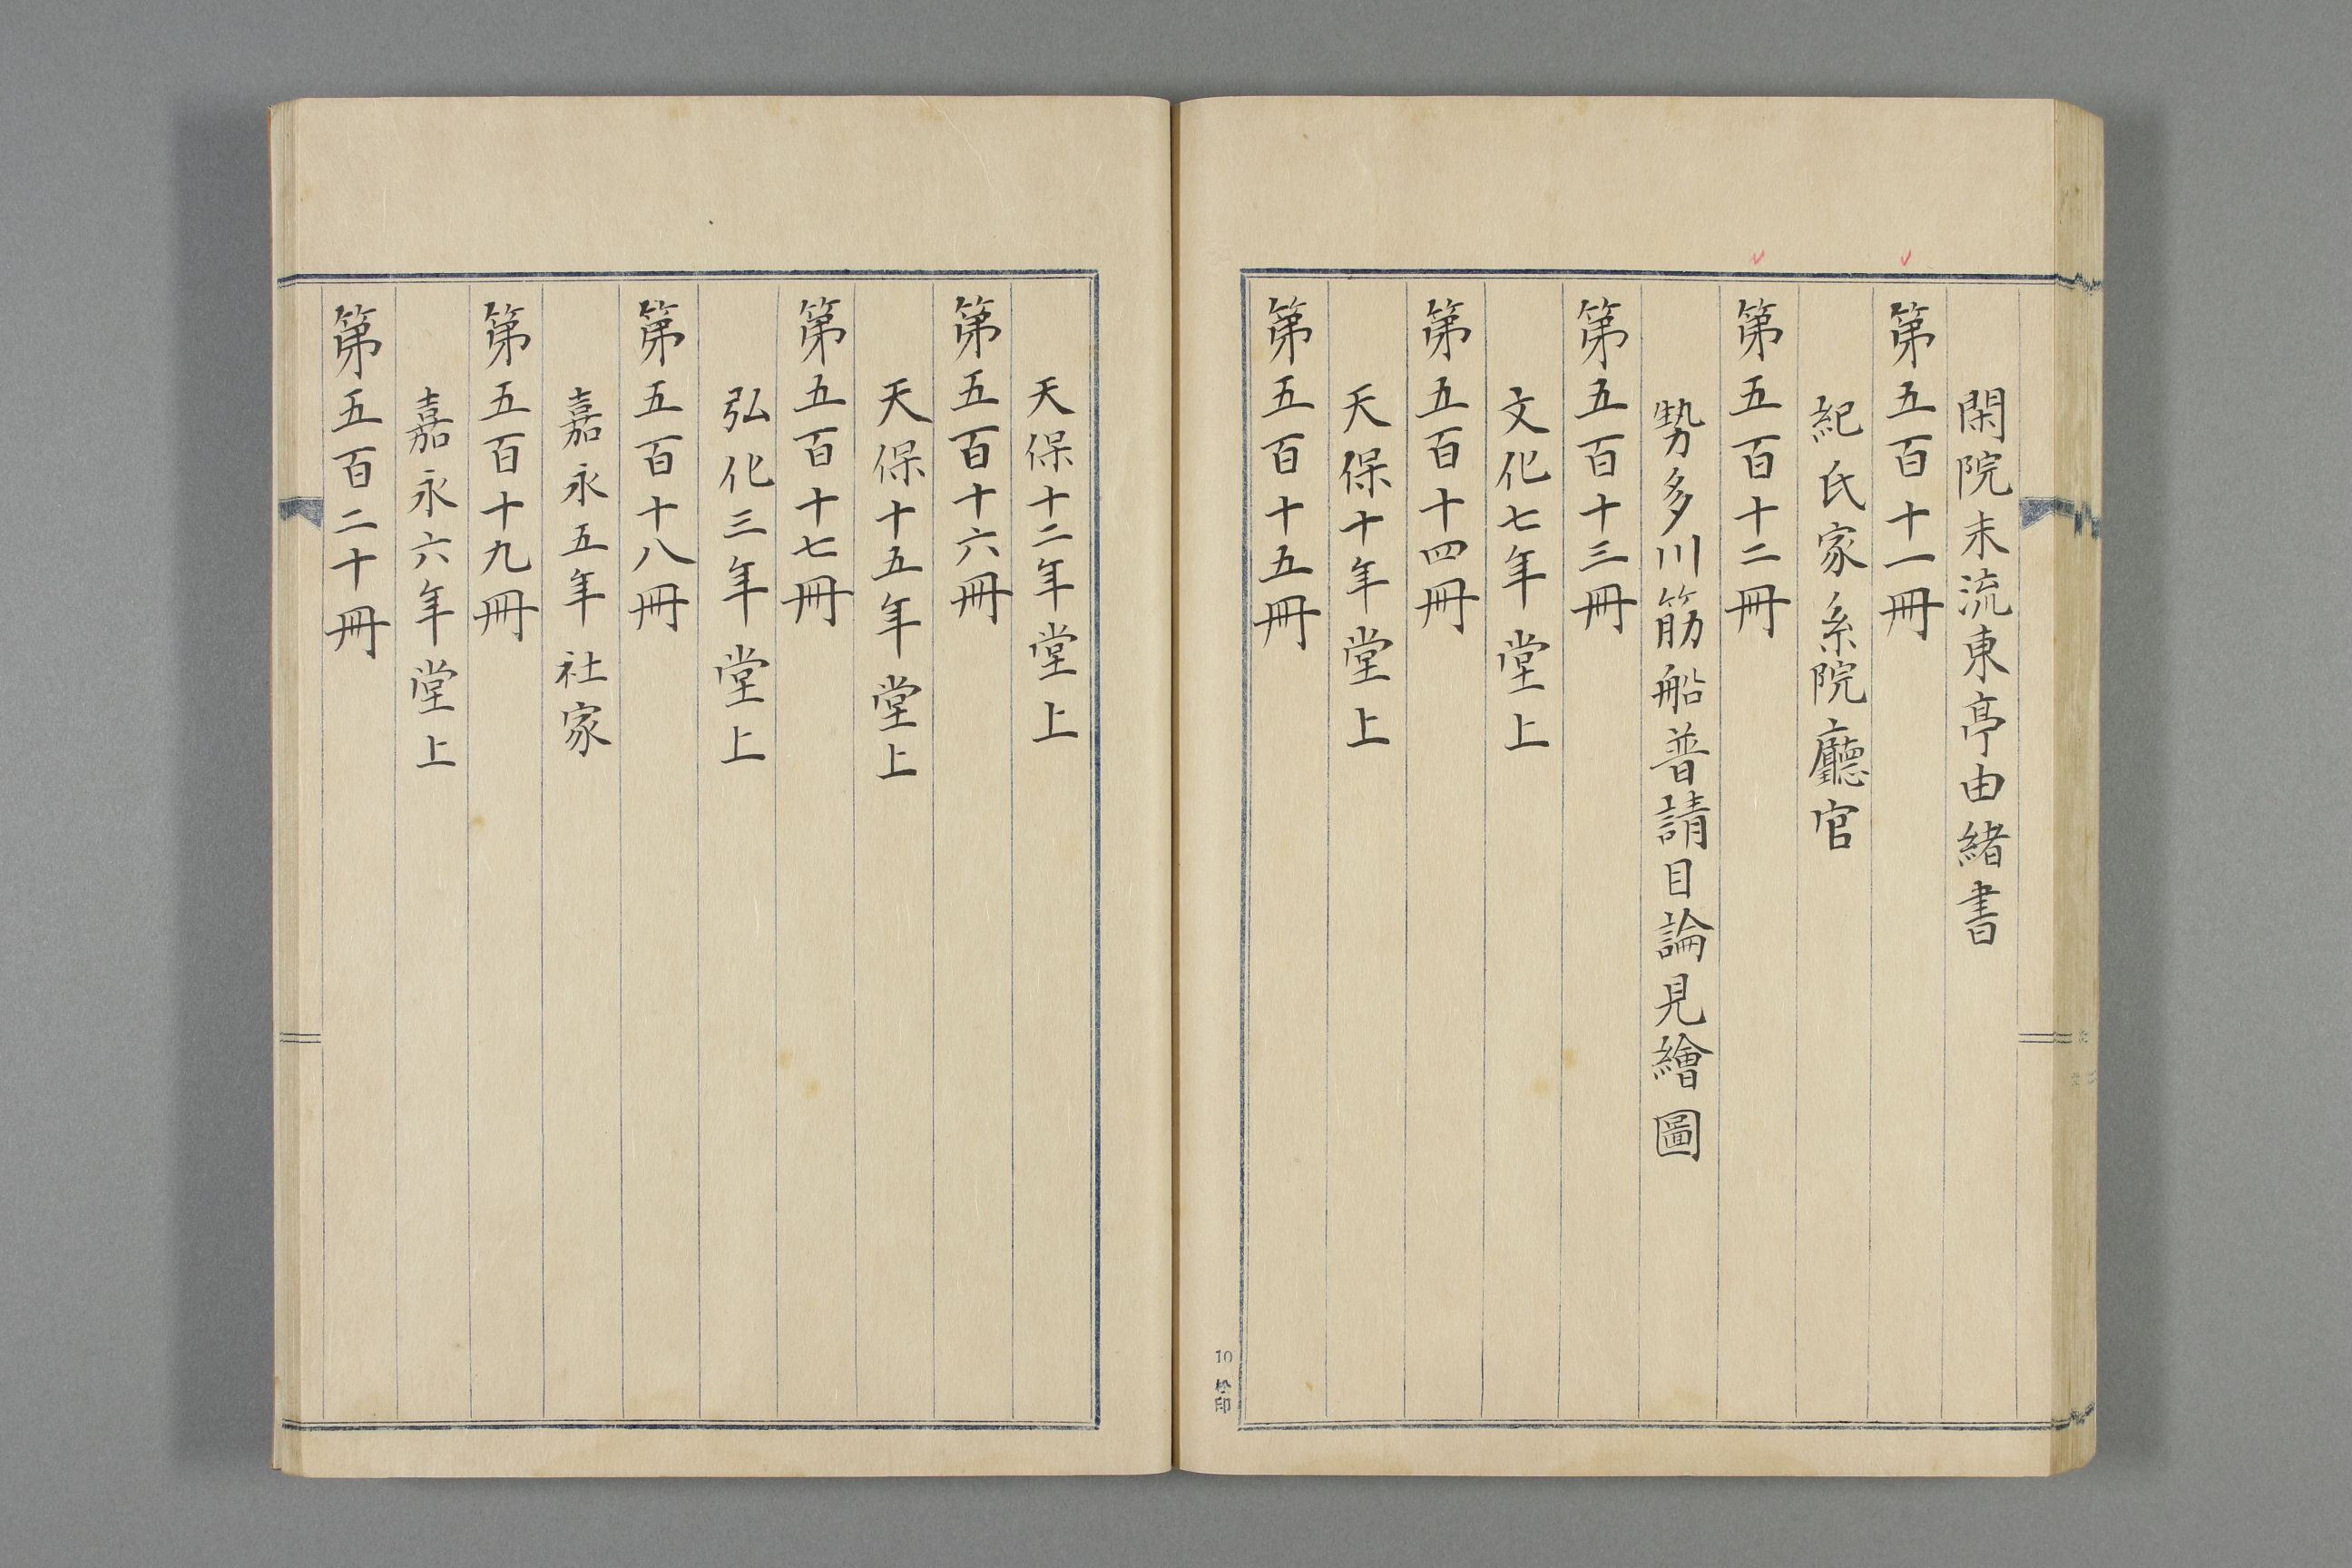 閑院末流東亭由緒書
第五百十一冊
紀氏家系院廳官
第五百十二冊
勢多川筋船普請目論見繪圖
第五百十三冊
文化七年堂上
第五百十四冊
天保十年堂上
第五百十五冊
10 松印
天保十二年堂上
第五百十六冊
天保十五年堂上
第五百十七冊
弘化三年堂上
第五百十八冊
嘉永五年社家
第五百十九冊
嘉永六年堂上
第五百二十冊